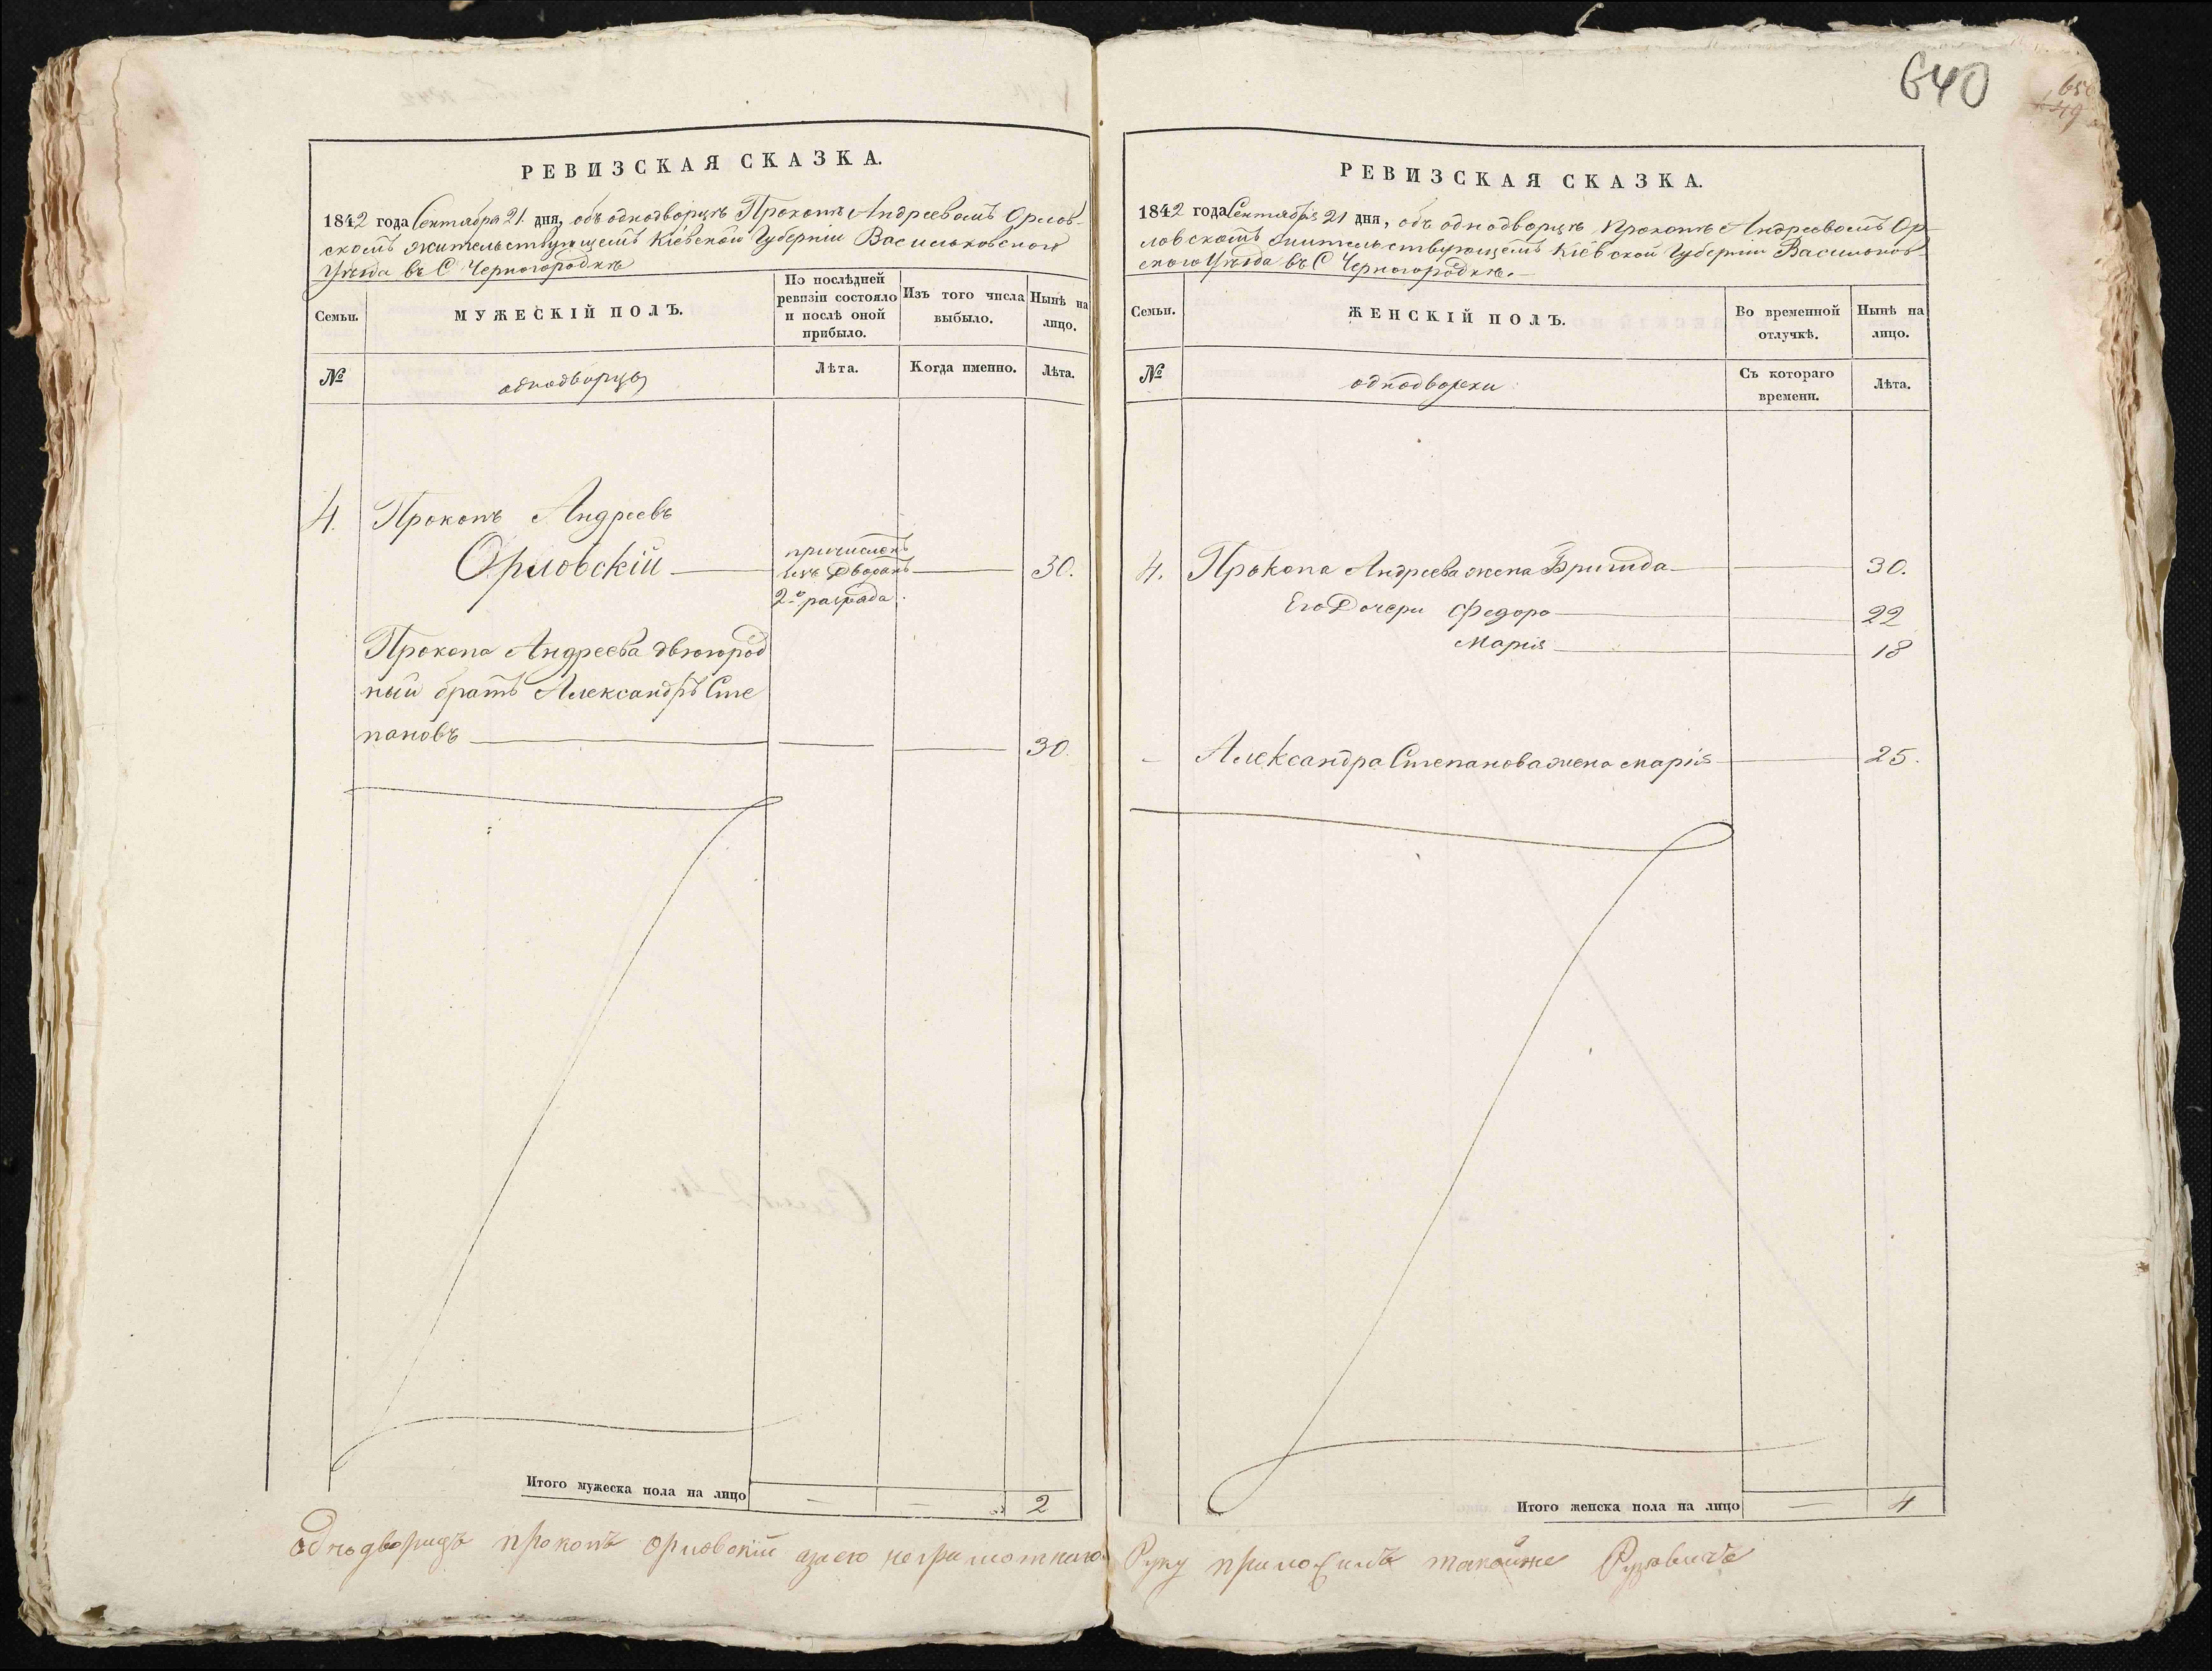 640
650
649
РЕВИЗСКАЯ СКАЗКА.
1842 года Сентября 21 дня, объ однодворцѣ Прокопѣ Андреевомъ Орлов-
скомъ жительствующемъ Кіевской Губерніи Васильковского
Уѣзда въ С Черногородкѣ
Семьи.
МУЖЕСКІЙ ПОЛЪ.
По послѣдней
ревизіи состояло
и послѣ оной
прибыло.
Изъ того числа
выбыло.
Нынѣ на
лицо.
№
однодворцы
Лѣта.
Когда именно.
Лѣта.
4. Прокопъ Андреевъ
Орловскій
причисленъ
изъ Дворянъ
2го разряда.
30.
Прокопа Андреева двоюрод
ный братъ Александръ Сте
пановъ 30.
Итого мужеска пола на лицо — — 2
РЕВИЗСКАЯ СКАЗКА.
1842 года Сентября 21 дня, объ однодворцѣ Прокопѣ Андреевомъ Ор-
ловскомъ жительствующемъ Кіевской Губерніи Васильков-
ского Уѣзда въ С Черногородкѣ.
Семьи.
ЖЕНСКІЙ ПОЛЪ.
Во временной
отлучкѣ.
Нынѣ на
лицо.
№
однодворки
Съ котораго
времени.
Лѣта.
4. Прокопа Андреева жена Бригида 30.
Его Дочери Федора 22
Марія 18
Александра Степанова жена Марія 25.
Итого женска пола на лицо — 4
однодворецъ прокопъ орловскій а за его неграмотного Руку приложилъ такойже